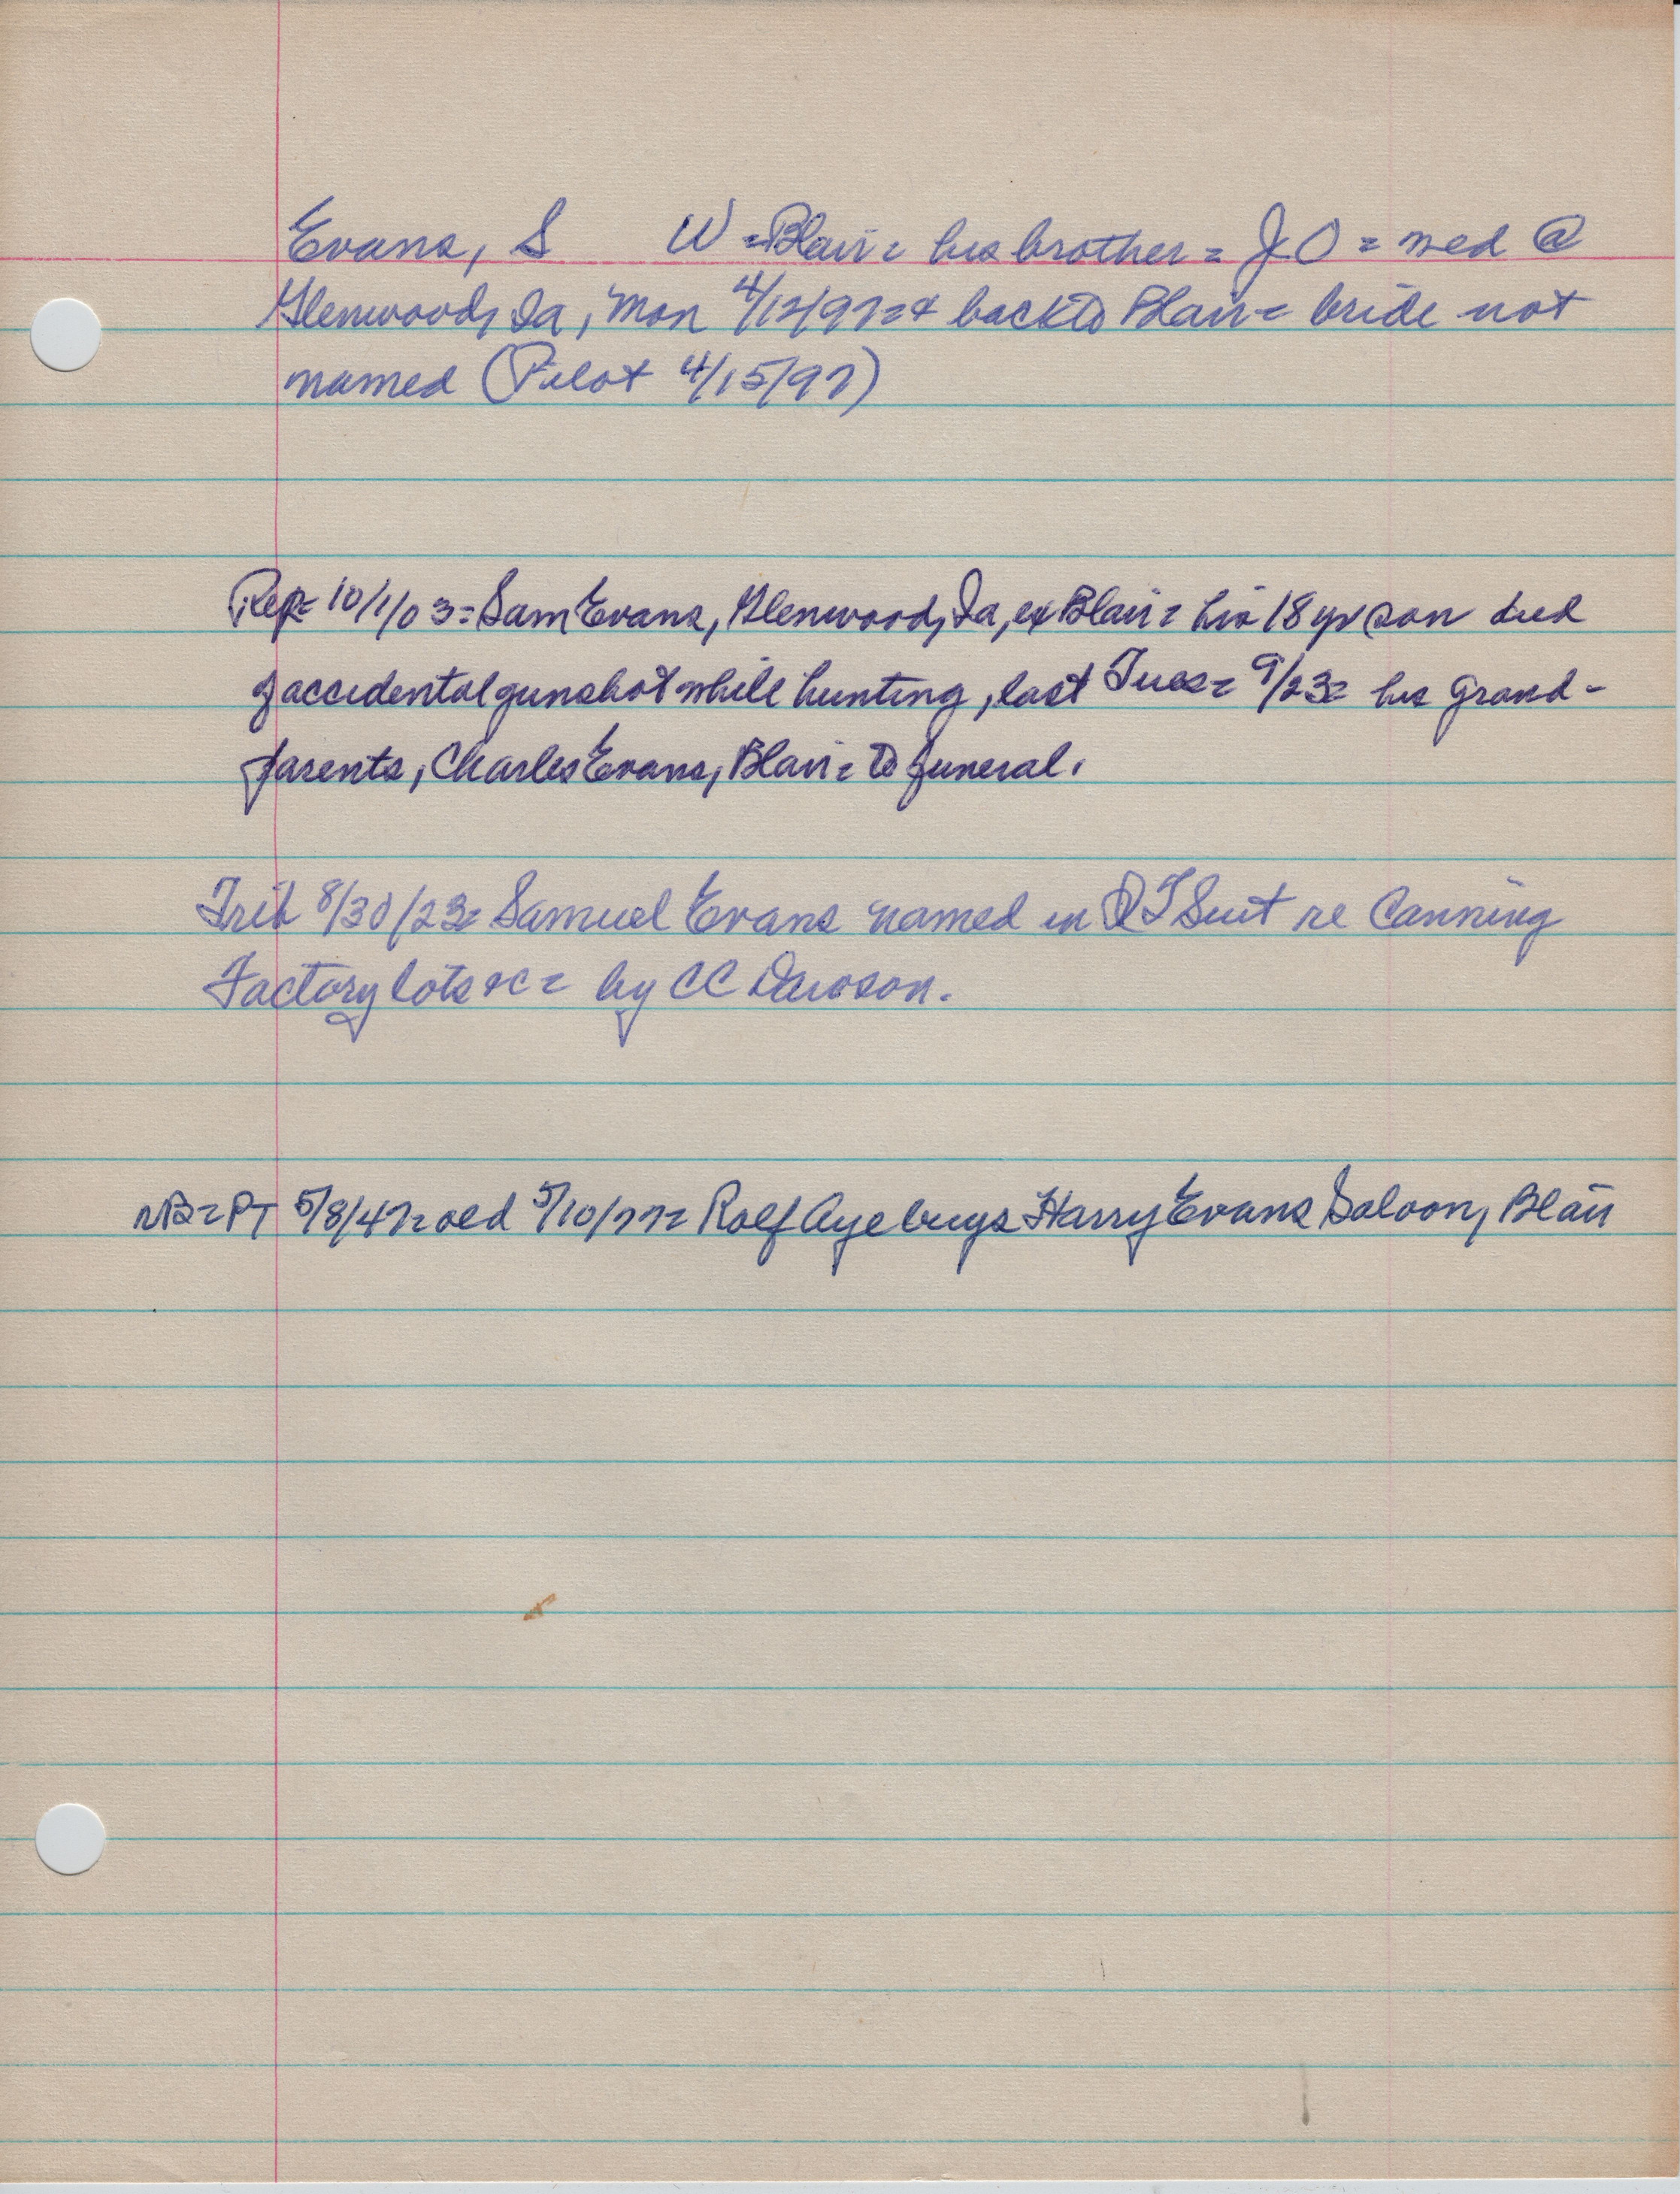 Evans, S W = Blair = his brother = J O = med @
Glenwood, Ia, Mon 4/12/97 = & back to Blair = bride not
named (Pilot 4/15/97)
Rep = 10/1/03 = Sam Evans, Glenwood, Ia, ex Blair = his 18 yr son died
of accidental gunshot while hunting, last Tues = 9/23 = his grand-
parents, Charles Evans, Blair = to funeral.
Trib 8/30/23 = Samuel Evans named in QT Suit re Canning
Factory lots &c = by CC Dawson.
NB = PT 5/8/47 = old 5/10/77 = Rolf Aye buys Harry Evans Saloon, Blair